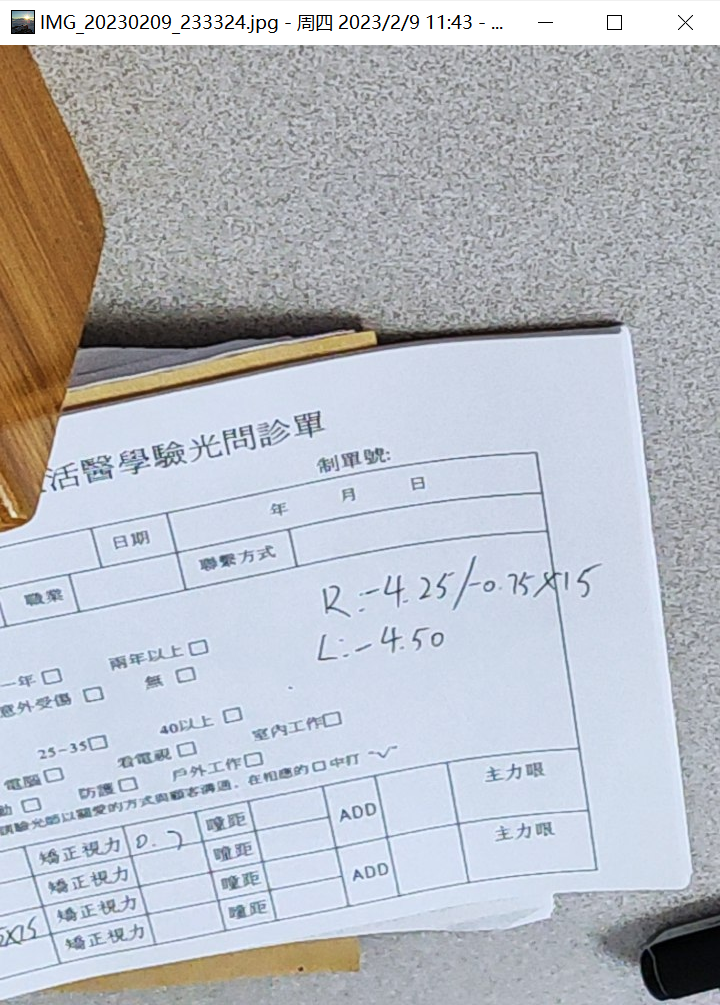 IMG_20230209_233324.jpg - 周四 2023/2/9 11:43 - ...
活醫學驗光問診單
制單號:
日期 年 月 日
職業 聯繫方式
R:-4.25/-0.75X15
L:-4.50
一年□ 兩年以上□
意外受傷□ 無□
25-35□ 40以上□
電腦□ 看電視□ 室內工作□
動□ 防護□ 戶外工作□
驗光師以關愛的方式與顧客溝通，在相應的□中打"√"
矯正視力 0.7 瞳距 ADD 主力眼
矯正視力 瞳距
矯正視力 瞳距 ADD 主力眼
X15 矯正視力 瞳距